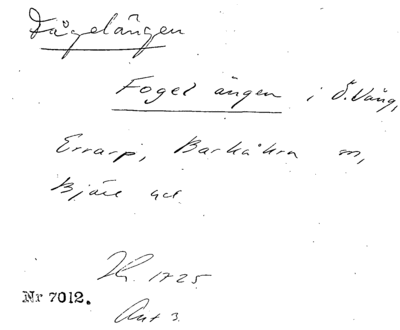 Fågelängen
Fogel ängen i Ö. Vång,
Errarp, Barkåkra m,
Bjäre hd
Jb. 1725
Ant 3.
Nr 7012.